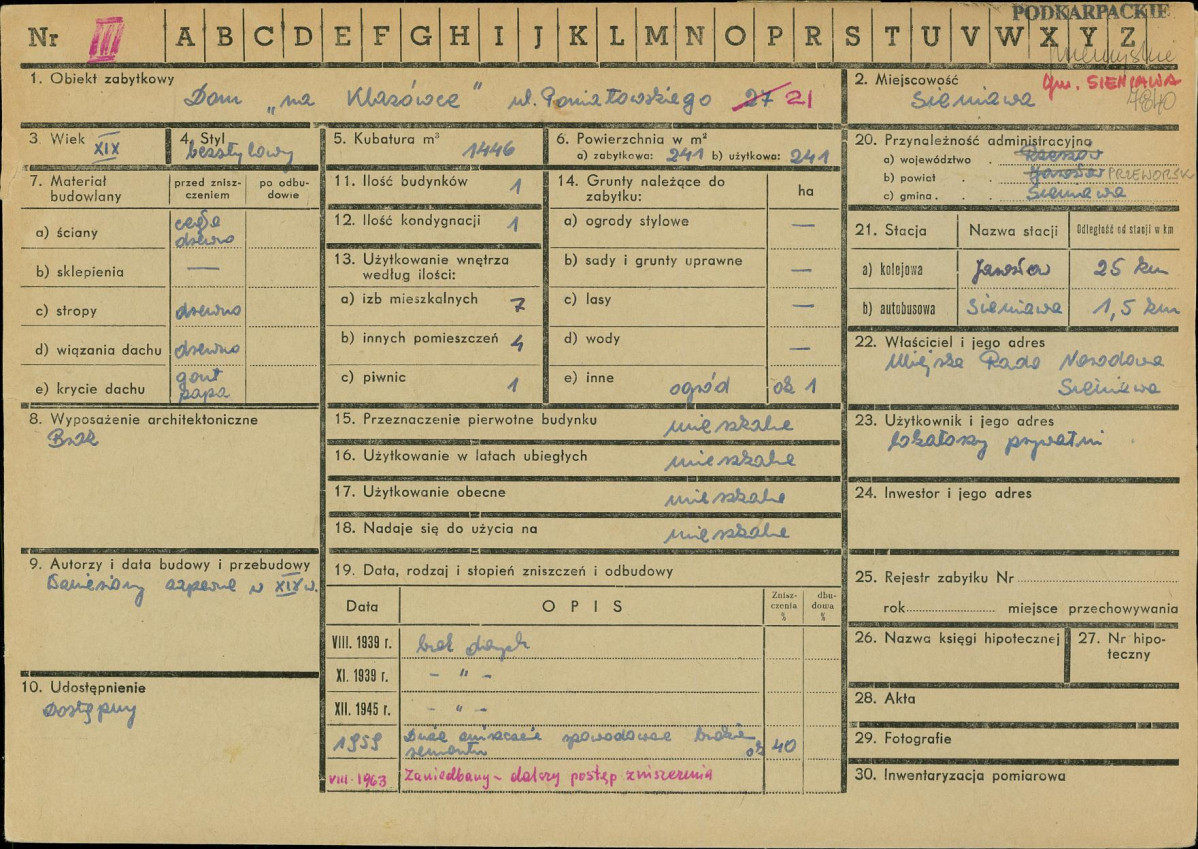 PODKARPACKIE
Nr III A B C D E F G H I J K L M N O P R S T U V W X Y Z
1. Obiekt zabytkowy
Dom „na Klasówce" ul. Poniatowskiego 27 21
2. Miejscowość
gm. SIENIAWA
Sieniawa
7840
3. Wiek XIX
4. Styl
bezstylowy
5. Kubatura m³
1446
6. Powierzchnia w m²
a) zabytkowa: 241 b) użytkowa: 241
20. Przynależność administracyjna
a) województwo . Rzeszów
b) powiat . . Jarosław PRZEWORSK
c) gmina . . Sieniawa
7. Materiał budowlany
przed zniszczeniem
po odbudowie
a) ściany
cegła
drewno
b) sklepienia —
c) stropy drewno
d) wiązania dachu drewno
e) krycie dachu
gont
papa
11. Ilość budynków 1
12. Ilość kondygnacji 1
13. Użytkowanie wnętrza
według ilości:
a) izb mieszkalnych 7
b) innych pomieszczeń 4
c) piwnic 1
14. Grunty należące do
zabytku:
ha
a) ogrody stylowe —
b) sady i grunty uprawne —
c) lasy —
d) wody —
e) inne ogród ok 1
21. Stacja Nazwa stacji Odległość od stacji w km
a) kolejowa Jarosław 25 km
b) autobusowa Sieniawa 1,5 km
22. Właściciel i jego adres
Miejska Rada Narodowa
Sieniawa
8. Wyposażenie architektoniczne
Brak
15. Przeznaczenie pierwotne budynku mieszkalne
16. Użytkowanie w latach ubiegłych mieszkalne
17. Użytkowanie obecne mieszkalne
18. Nadaje się do użycia na mieszkalne
23. Użytkownik i jego adres
lokatorzy prywatni
24. Inwestor i jego adres
9. Autorzy i data budowy i przebudowy
w XIX w.
10. Udostępnienie
Dostępny
19. Data, rodzaj i stopień zniszczeń i odbudowy
Data OPIS Zniszczenia % dbudowa %
VIII. 1939 r. brak danych
XI. 1939 r. – " –
XII. 1945 r. – " –
1959 Duże zniszczenie spowodowane brakiem
remontu ok 40
VIII. 1963 Zaniedbany – dalszy postęp zniszczenia
25. Rejestr zabytku Nr
rok miejsce przechowywania
26. Nazwa księgi hipotecznej
27. Nr hipoteczny
28. Akta
29. Fotografie
30. Inwentaryzacja pomiarowa